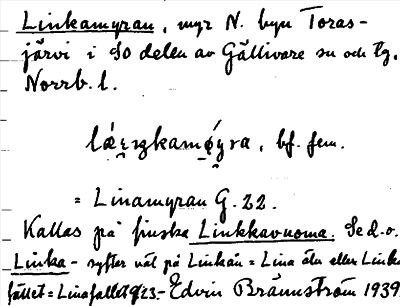 Linkamyran, myr N. byn Toras-
järvi i SO delen av Gällivare sn och tg,
Norrb. l.
kamǿyra, bf. fem.
= Linamyran G. 22.
Kallas på finska Linkkavuoma. Se d.o.
Linka- syftar väl på Linkån = Lina älv eller Linka
fallet = Linafallet G23.- Edvin Brännström 1939